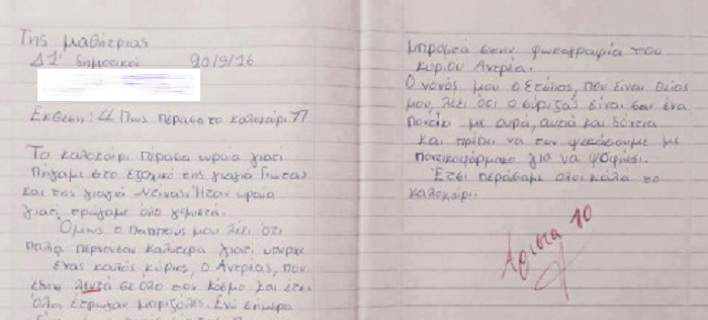 Της μαθήτριας
Δ1' δημοτικού 20/9/16
Έκθεση: "Πως πέρασα το καλοκαίρι"
Το καλοκαίρι πέρασα ωραία γιατί
πήγαμε στο εξοχικό της γιαγιά Γιώτας
και της γιαγιά Ντίνας. Ήταν ωραία
γιατί τρώγαμε όλο γεμιστά.
Όμως ο παππούς μου λέει ότι
παλιά περνούσαν καλύτερα γιατί υπήρχε
ένας καλός κύριος, ο Ανερέας, που
έδινε λευτά σε όλο τον κόσμο και έτσι
όλοι έτρωγαν μπριζόλες. Ενώ σήμερα
μπροστά στην φωτογραφία του
κύριου Ανερέα.
Ο νονός μου ο Στάθης, που είναι θείος
μου, λέει ότι ο σύριζας είναι σαν ένα
ποντίκι με ουρά, αυτιά και δόντια
και πρέπει να τον ψεκάσουμε με
ποντικοφάρμακο για να ψοφήσει.
Έτσι περάσαμε όλοι καλά το
καλοκαίρι.
Άριστα 10